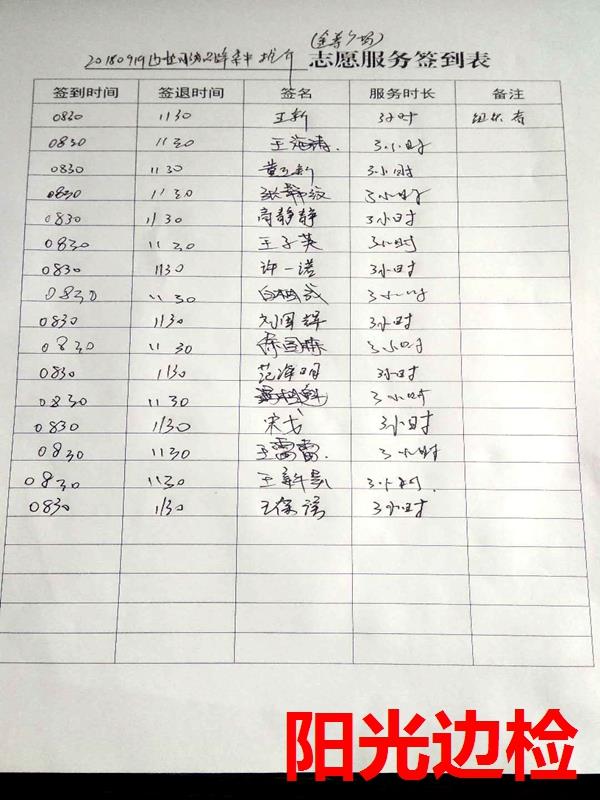 20180919
推介 志愿服务签到表
签到时间 签退时间 签名 服务时长 备注
0830 1130 王新 3小时 组织者
0830 1130 王海涛. 3小时
0830 1130 3小时
0830 1130 3小时
0830 1130 高静静 3小时
0830 1130 王子英 3小时
0830 1130 许一诺 3小时
0830 1130 3小时
0830 1130 刘国辉 3小时
0830 1130 3小时
0830 1130 范净明 3小时
0830 1130 3小时
0830 1130 宋戈 3小时
0830 1130 王雷雷. 3小时
0830 1130 王新 3小时.
0830 1130 王保 3小时
阳光边检